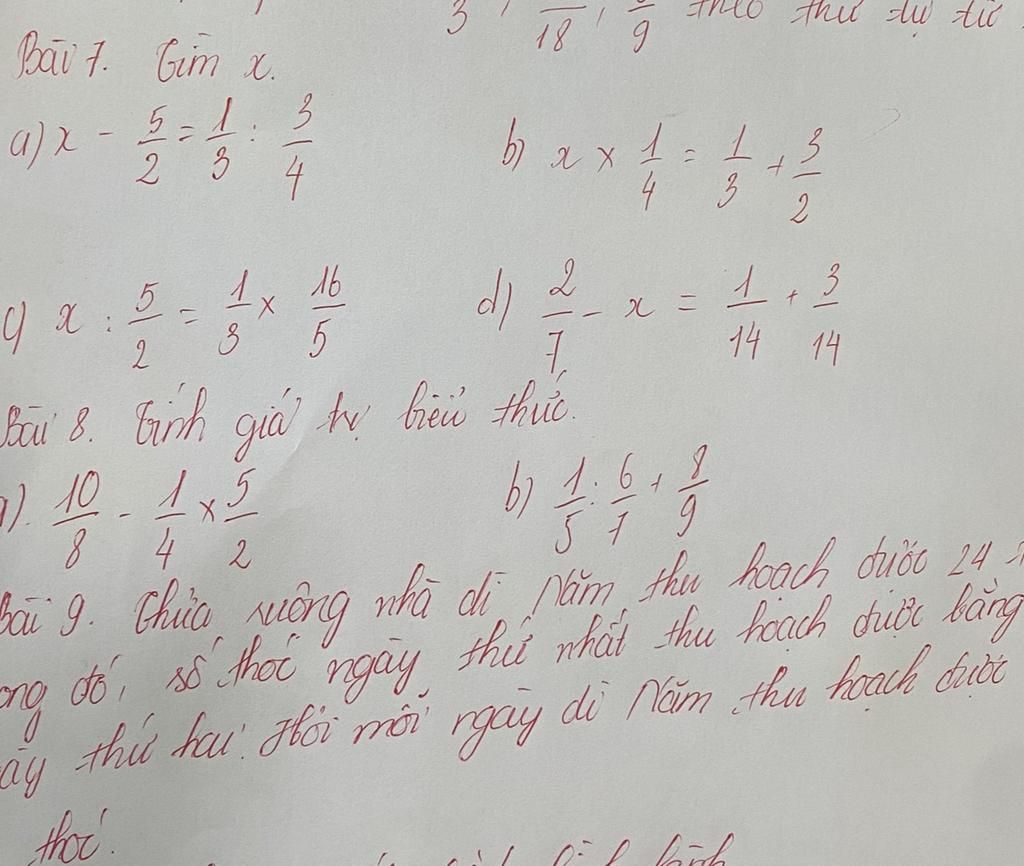 3 , /18 , /9 theo thứ tự từ
Bài 7. Tìm x.
a) x - 5/2 = 1/3 : 3/4 b) x × 1/4 = 1/3 + 3/2
c) x : 5/2 = 1/3 × 16/5 d) 2/7 - x = 1/14 + 3/14
Bài 8. Tính giá trị biểu thức.
a). 10/8 - 1/4 × 5/2 b) 1/5 : 6/7 + 8/9
Bài 9. Thửa ruộng nhà dì Năm thu hoạch được 24
ong đó, số thóc ngày thứ nhất thu hoạch được bằng
ày thứ hai. Hỏi mỗi ngày dì Năm thu hoạch được
thóc.